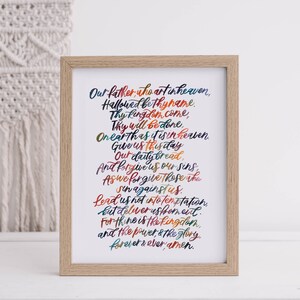 Our father, who art in heaven,
Hallowed be thy name.
Thy kingdom come,
Thy will be done.
On earth as it is in heaven.
Give us this day
Our daily bread.
And forgive us our sins.
As we forgive those who
sin against us.
Lead us not into temptation,
but deliver us from evil.
For thine is the kingdom,
and the power & the glory,
forever & ever, amen.